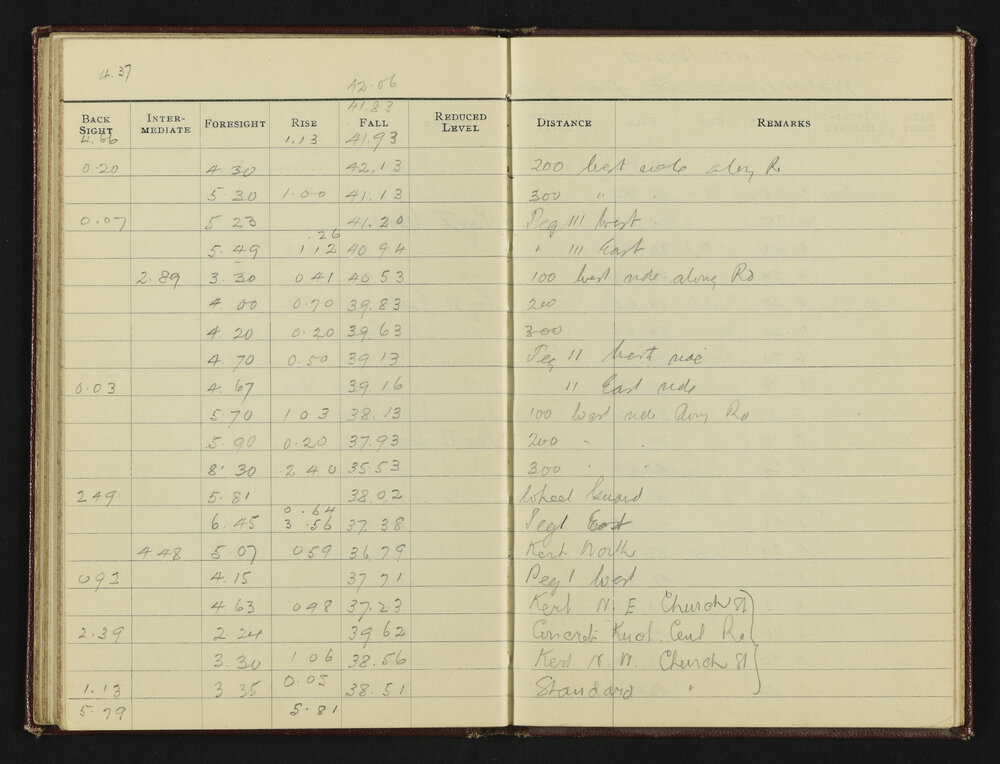 4.37
42.06
41.83
BACK SIGHT INTER-MEDIATE FORESIGHT RISE FALL REDUCED LEVEL DISTANCE REMARKS
4.66 1.13 41.93
0.20 4.30 42.13 200 West side along Rd
5.30 1.00 41.13 300 "
0.07 5.23 41.20 Peg III West
.26
5.49 1 12 40 94 " III East
2.89 3.30 0 41 40 53 100 West side along Rd
4.00 0.70 39.83 200
4.20 0.20 39.63 300
4.70 0.50 39.13 Peg II West side
0.03 4.67 39.16 II East side
5 70 1 03 38.13 100 West side along Rd
5.90 0.20 37.93 200 " "
8.30 2 40 35.53 300 " "
2 49 5.81 38.02 Wheel Guard
0.64
6.45 3.56 37 38 Peg I East
4 48 5.07 0 59 36 79 Kerb North
0 92 4.15 37 71 Peg I West
4.63 0 48 37.23 Kerb N. E Church St
2.39 2 24 39 62 Concrete Cent Rd
3.30 1 06 38.56 Kerb N. W. Church St
1.13 3 35 0.05 38.51 Standard "
5.79 5.81